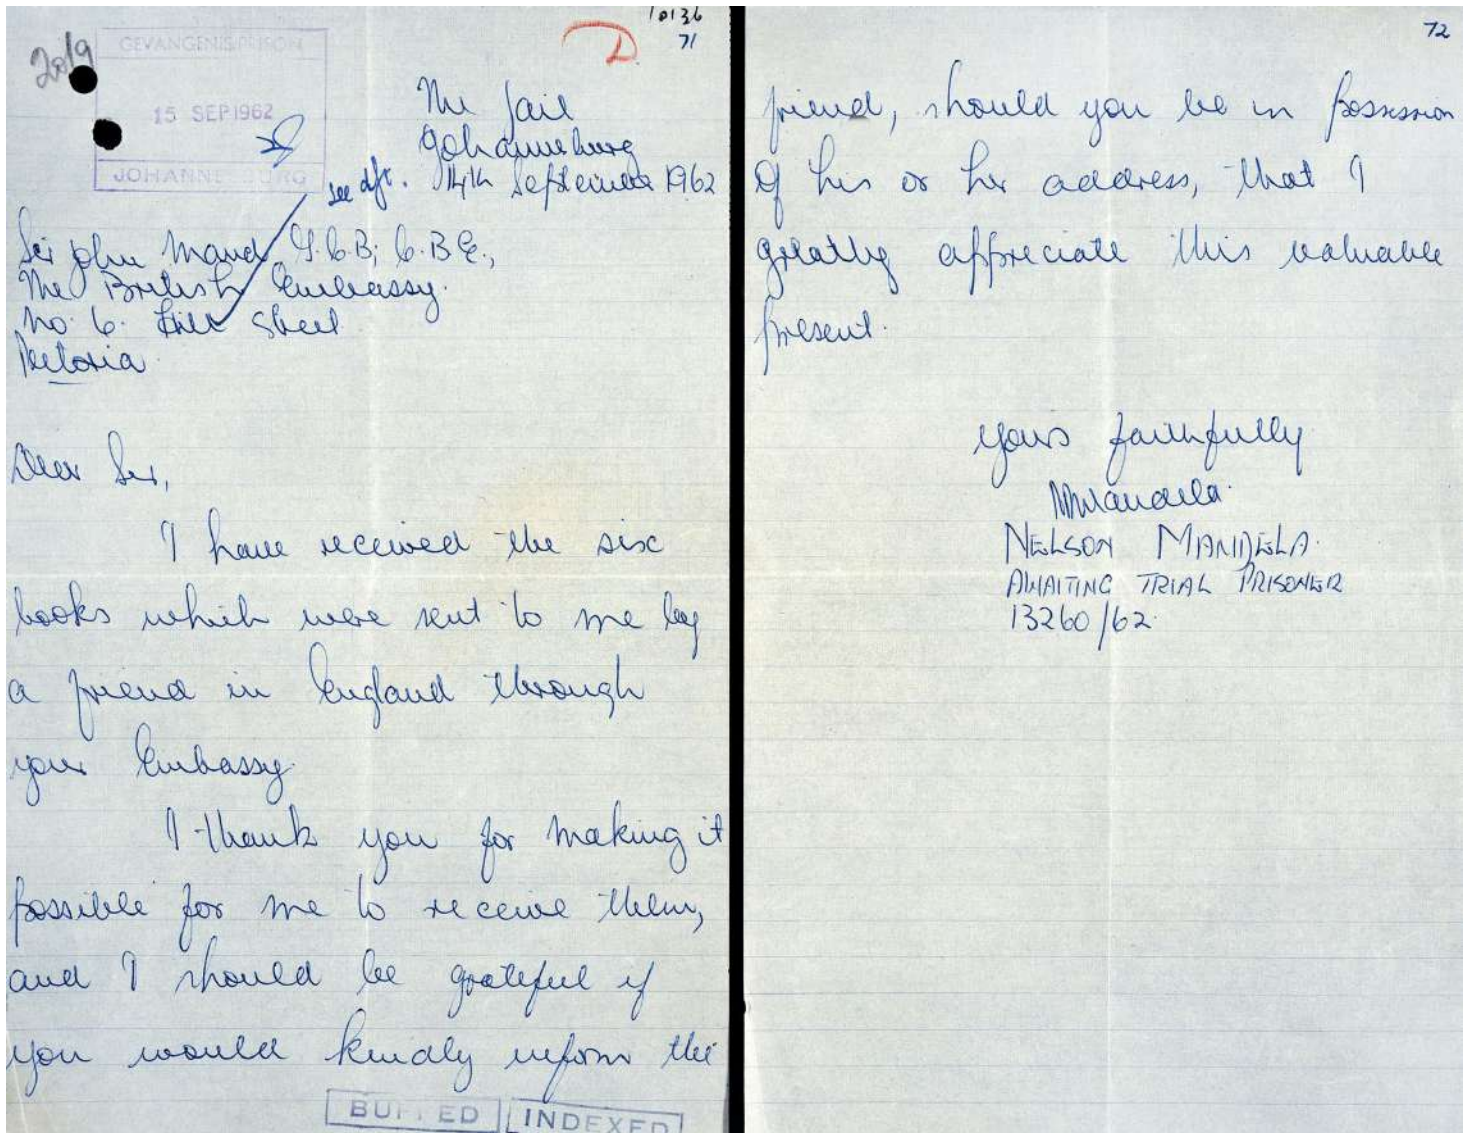 10136
71
2019
GEVANGENIS PRISON
15 SEP 1962
JOHANNESBURG
D
The Jail
Johannesburg
see dft. 14th September 1962
Sir John Maud, G.C.B; C.B.E.,
The British Embassy.
No. 6. Hill Street
Pretoria.
Dear Sir,
I have received the six
books which were sent to me by
a friend in England through
your Embassy.
I thank you for making it
possible for me to receive them,
and I should be grateful if
you would kindly inform the
BUFFED INDEXED
72
friend, should you be in possession
of his or her address, that I
greatly appreciate this valuable
present.
Yours faithfully
NMandela.
NELSON MANDELA.
AWAITING TRIAL PRISONER
13260/62.